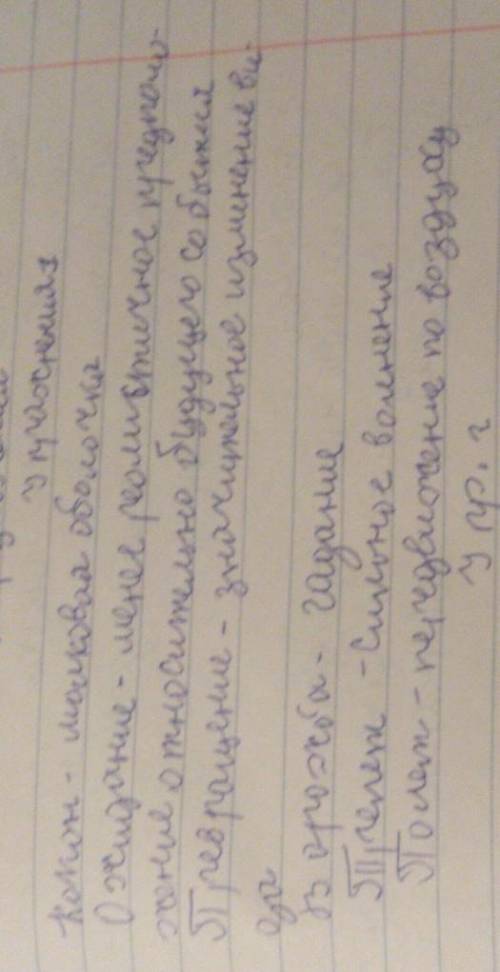 Упражнения 1
Кокон - шелковая оболочка
Ожидание - менее реалистичное предполо-
жение относительно будущего события
Превращение - значительное изменение ви-
да
Ворожба - гадание
Трепет - сильное волнение
Полет - передвижение по воздуху
Упр. 2